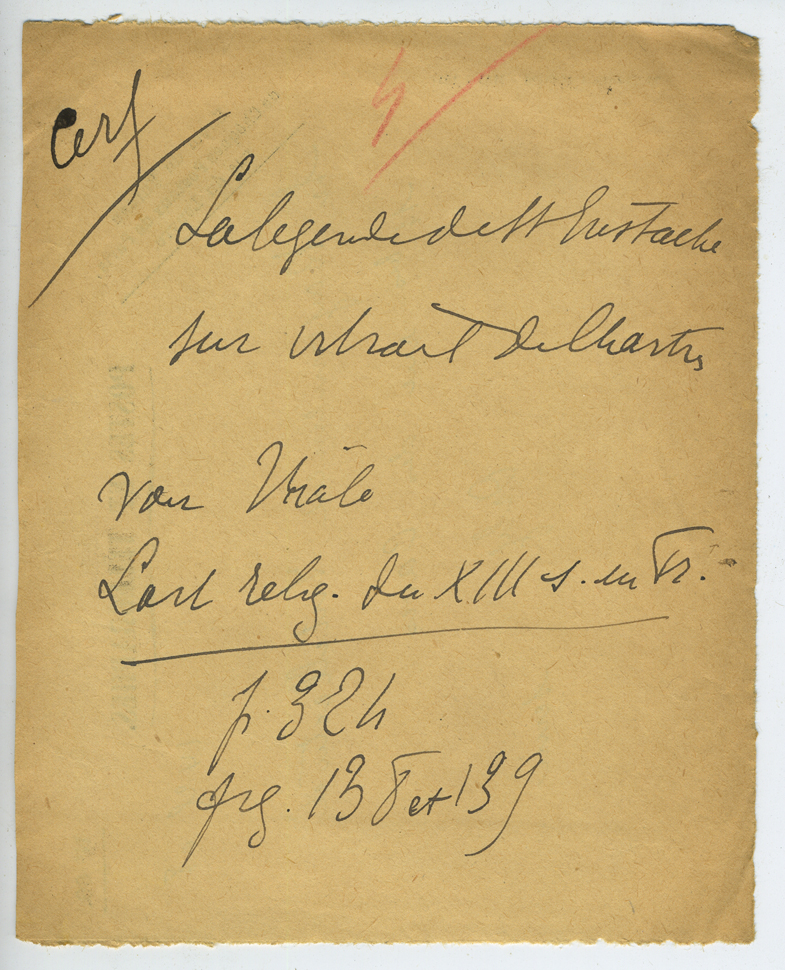 Cerf
4
La legende de St Eustache
sur vitrail de Chartres
voir Mâle
L'art relig. du XIII s. en Fr.
p. 324
fig. 138 et 139